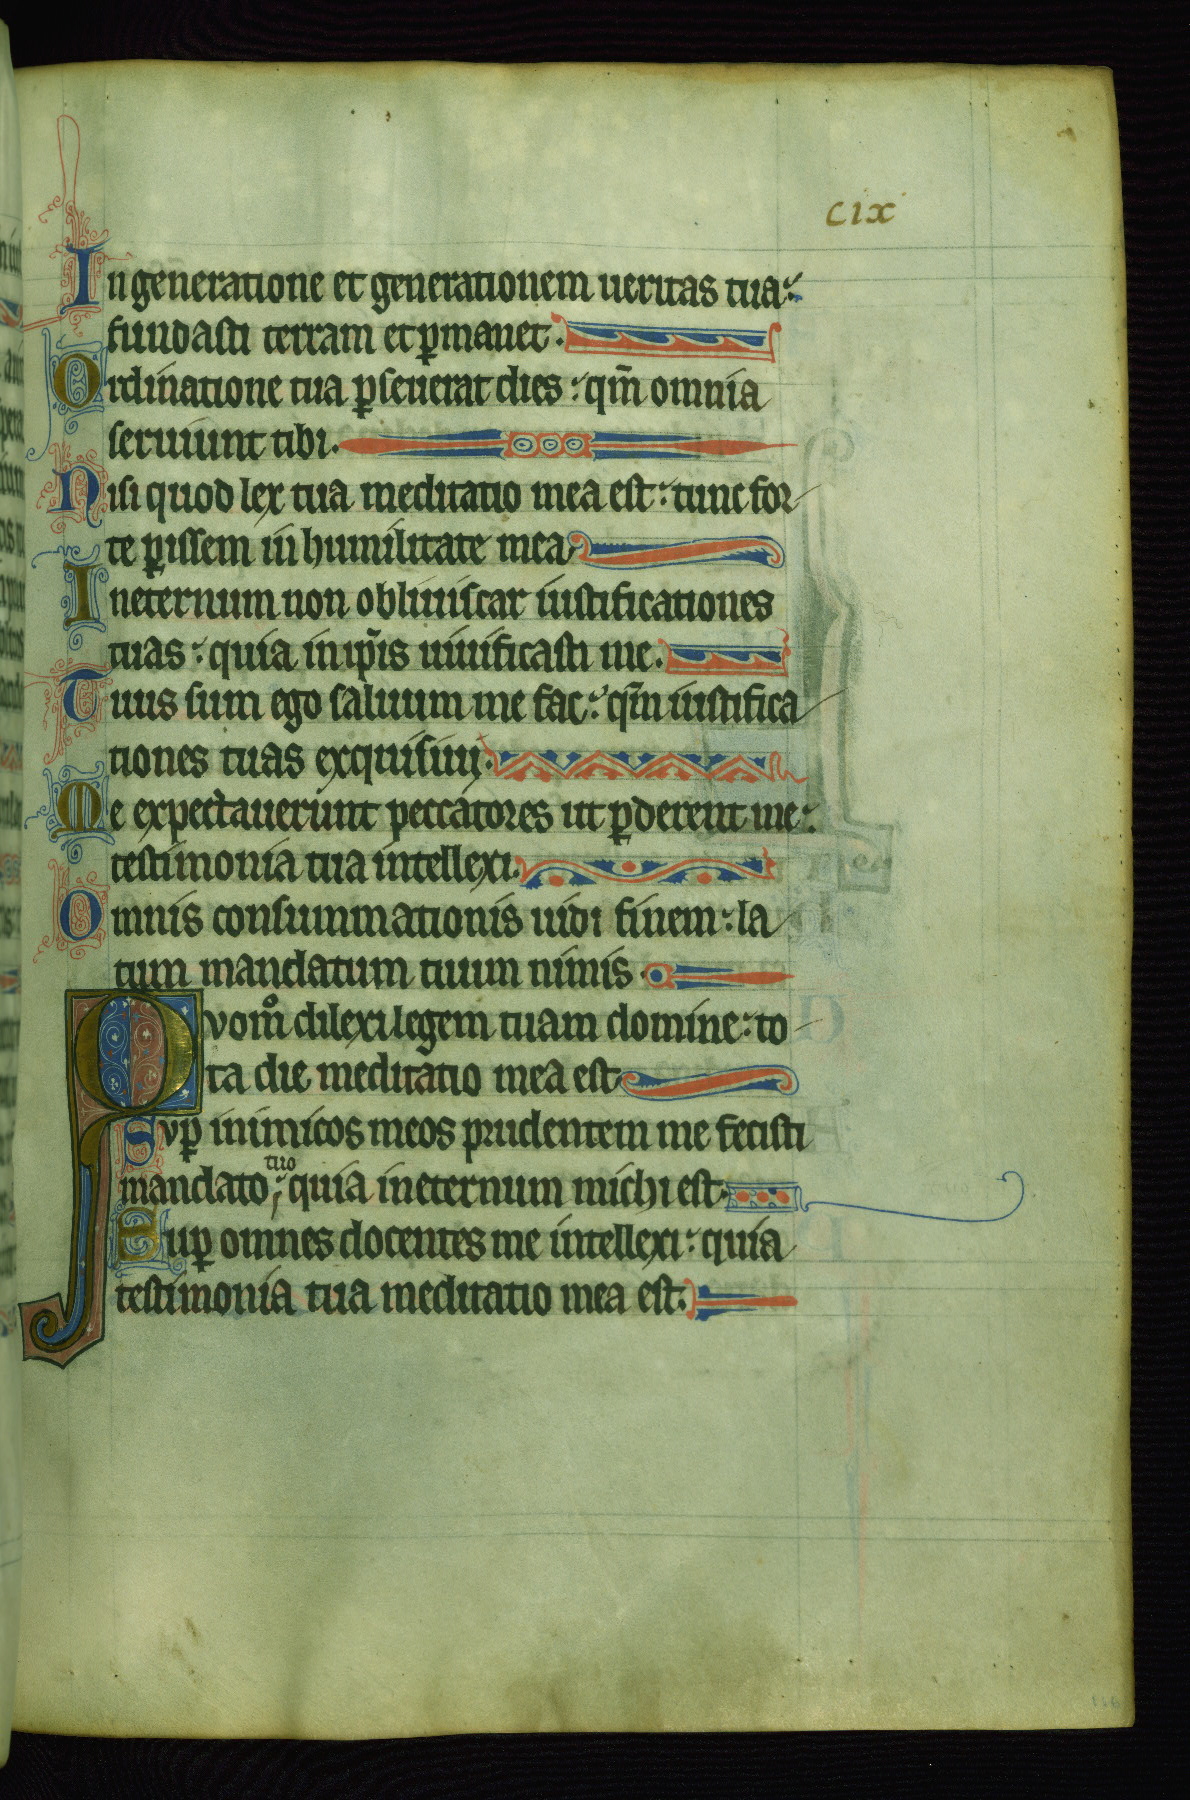 cix
In generatione et generationem ueritas tua:
fundasti terram et p̲manet.
Ordinatione tua p̲seuerat dies: qm̄ omnia
seruiunt tibi.
Nisi quod lex tua meditatio mea est: tunc for
te p̲issem in humilitate mea
In eternum non obliuiscar iustificationes
tuas: quia in ip̄is uiuificasti me.
Tuus sum ego saluum me fac: qm̄ iustifica
tiones tuas exquisiui.
Me expectauerunt peccatores ut p̲derent me:
testimonia tua intellexi.
Omnis consummationis uidi finem: la
tum mandatum tuum nimis.
Qvom̊ dilexi legem tuam domine: to
ta die meditatio mea est
Svp̲ inimicos meos prudentem me fecisti
mandato tuo: quia in eternum michi est.
Sup̲ omnes docentes me intellexi: quia
testimonia tua meditatio mea est.